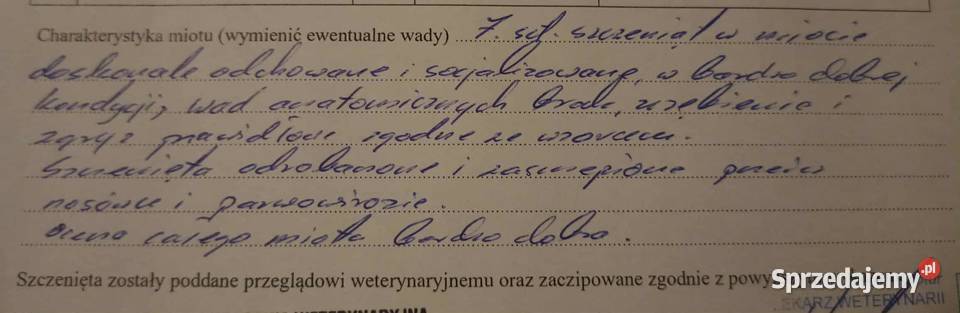 Charakterystyka miotu (wymienić ewentualne wady) 7. szt. szczeniąt w miocie
doskonale odchowane i socjalizowane, w bardzo dobrej
kondycji, wad anatomicznych brak, uzębienie i
zgryz prawidłowe zgodne ze wzorcem.
Szczenięta odrobaczone i zaszczepione przeciw
nosówce i parwowirozie.
Ocena całego miotu bardzo dobra.
Szczenięta zostały poddane przeglądowi weterynaryjnemu oraz zaczipowane zgodnie z powy
Sprzedajemy.pl
LEKARZ WETERYNARII